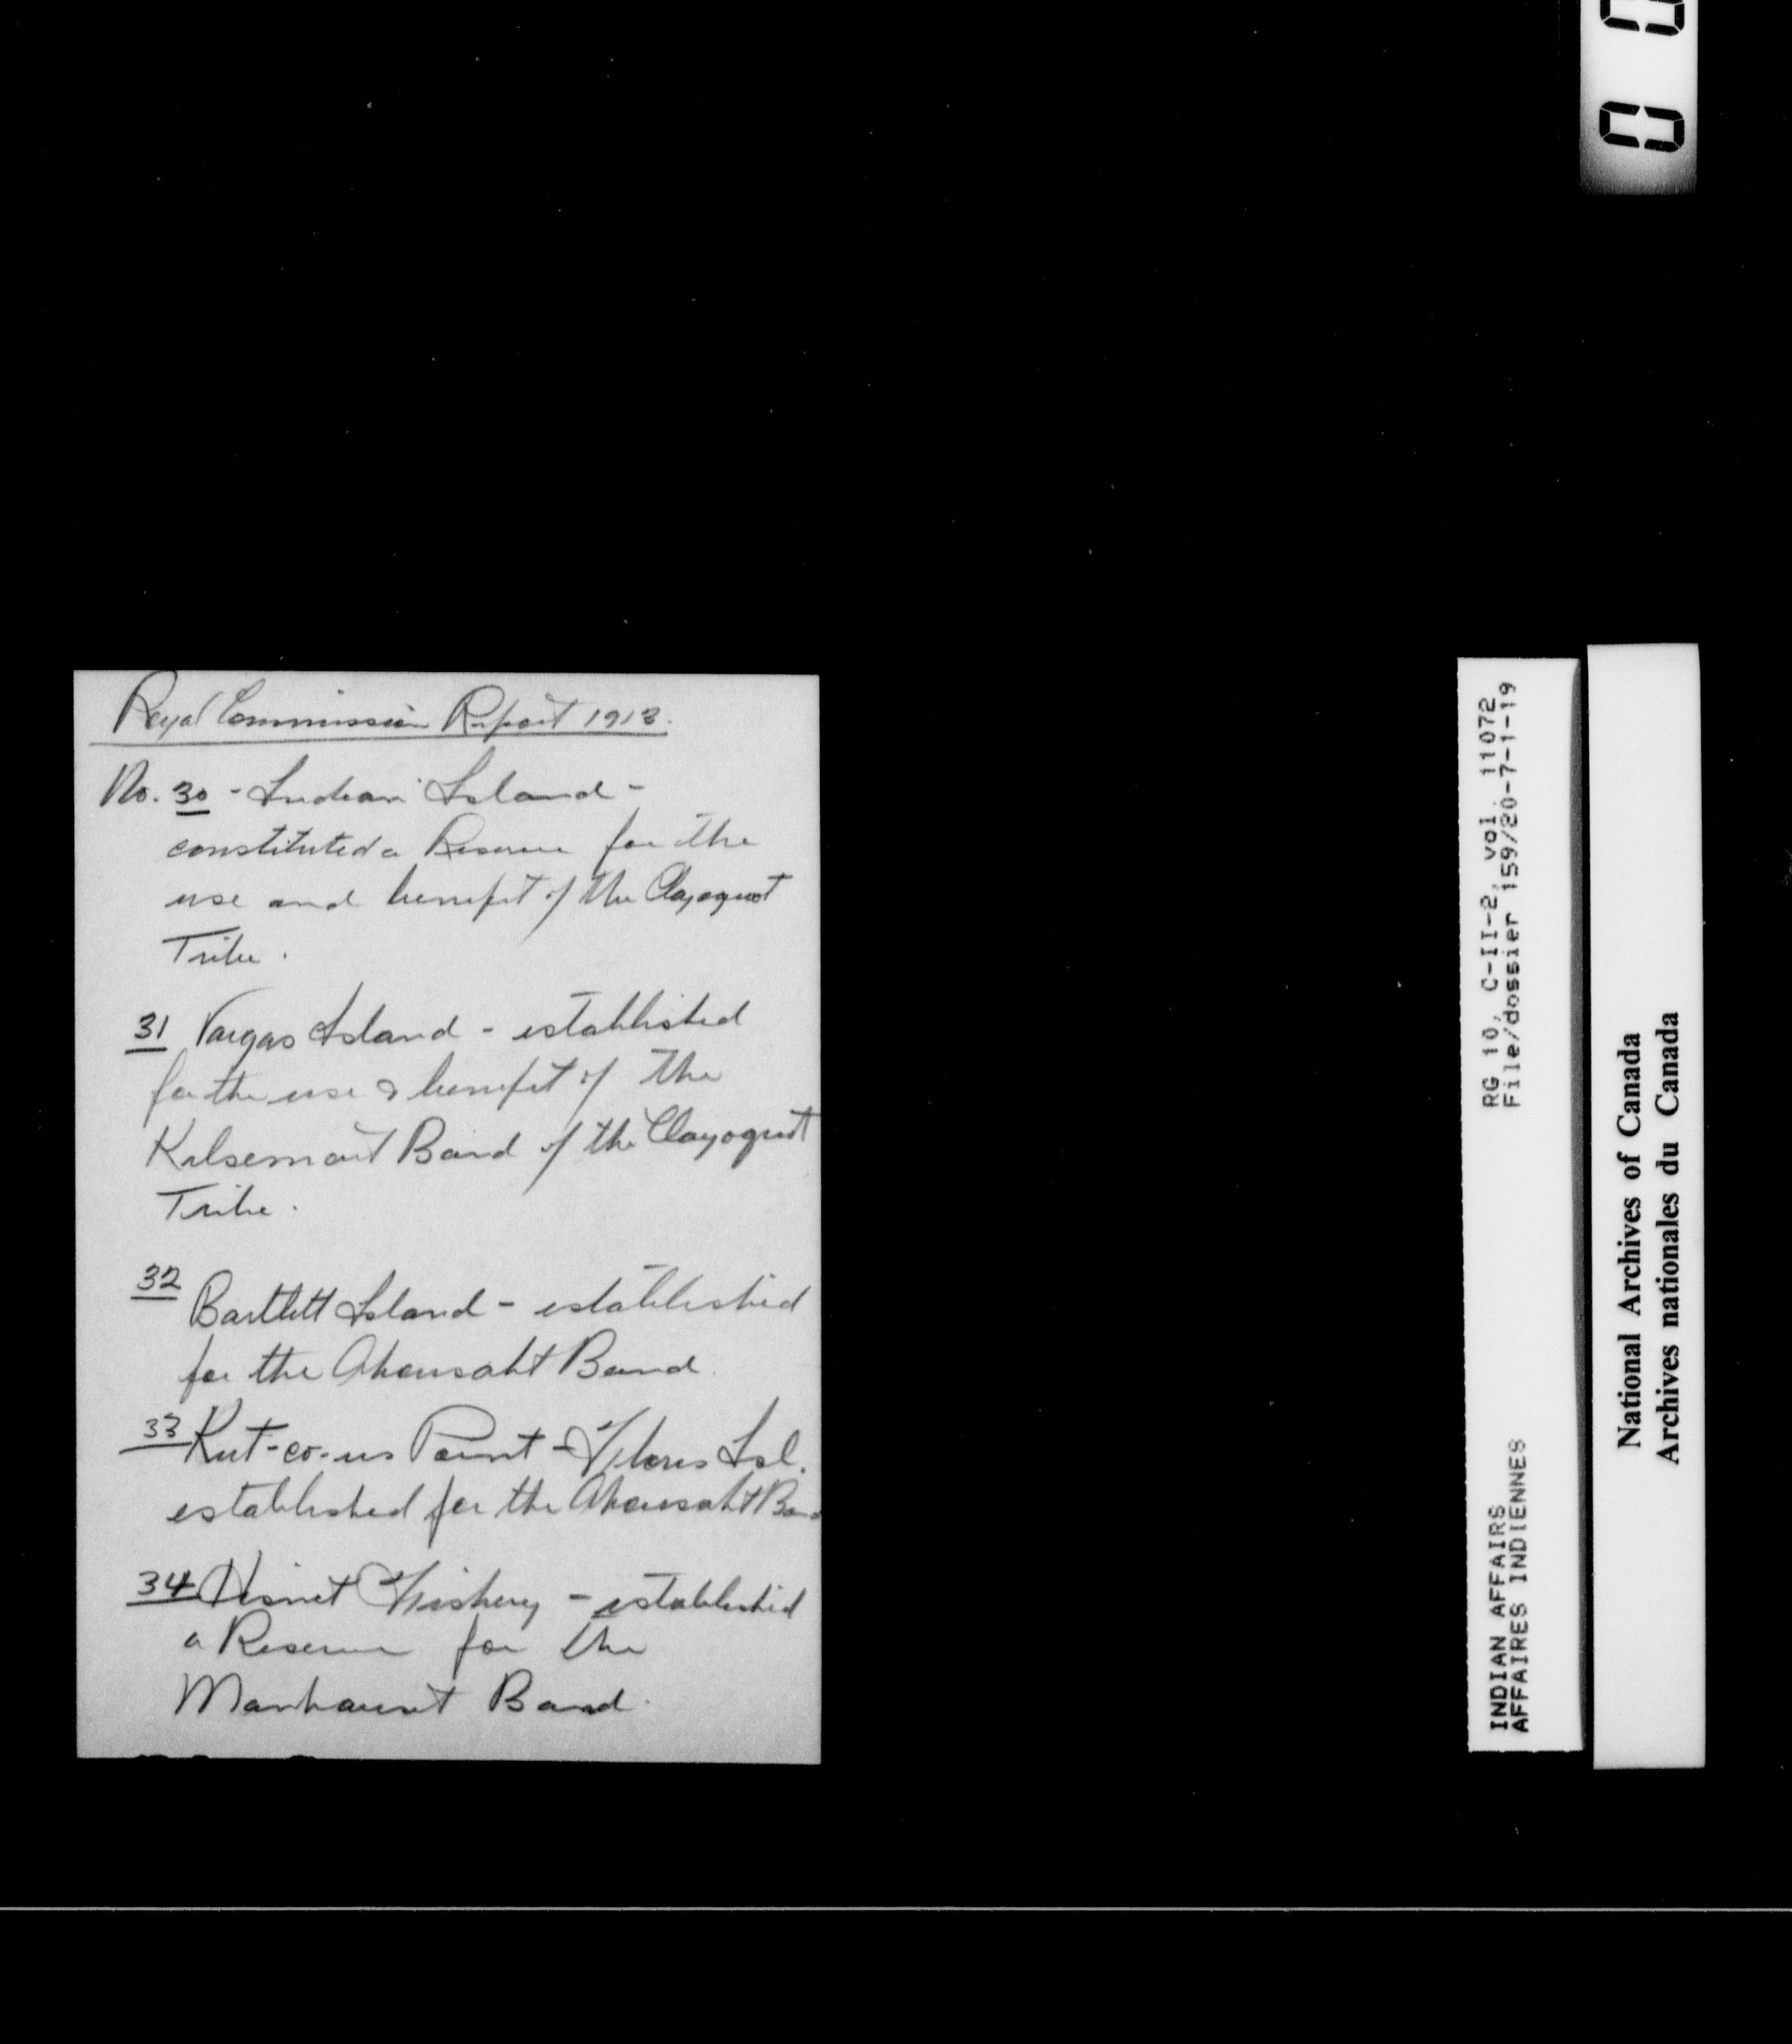 Royal Commission Report 1913.
No. 30 - Indian Island -
constituted a Reserve for the
use and benefit of the Clayoquot
Tribe.
31 Vargas Island - established
for the use & benefit of the
Kelsemart Band of the Clayoquot
Tribe.
32
Bartlett Island - established
for the Ahousaht Band.
33 Kut-co-us Point - Flores Isl.
established for the Ahousaht Band
34 Hisnit Fishery - established
a Reserve for the
Manhauset Band.
RG 10, C-II-2, vol. 11072
File/dossier 159/20-7-1-19
INDIAN AFFAIRS
AFFAIRES INDIENNES
National Archives of Canada
Archives nationales du Canada